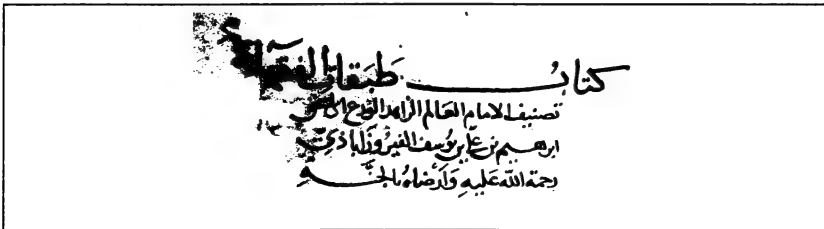 كتاب طبقات الفقهاء
تصنيف الامام العالم الزاهد الورع ابى اسحق
ابرهيم بن علي بن يوسف الفيروزاباذي
رحمة الله عليه وارضاه بالجنة